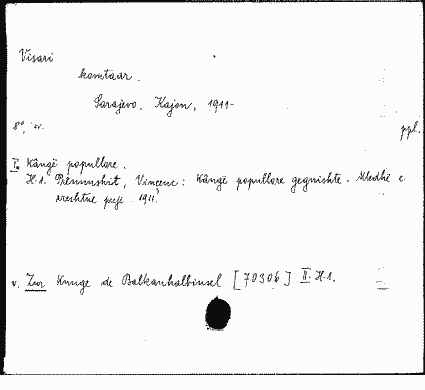 Visari
komtaar.
Sarajevo. Kajon, 1911-
8°,
ppl.
I. Kângë popullore.
H.1. Prennushit, Vinçenc: Kângë popullore gegnishte. Mledhë e
rreshtue prejë 1911.
v. Zur Kunge de Balkanhalbinsel [70306] II. H.1.